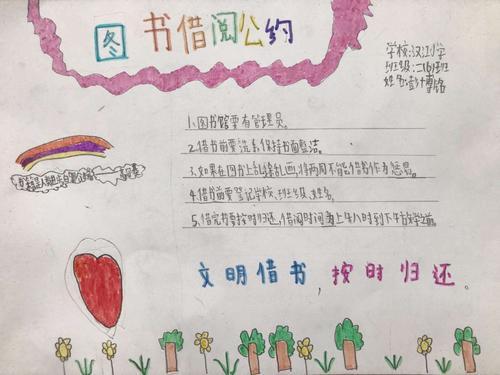 图书借阅公约
学校:汉江小学
班级:二(6)班
姓名:彭博铭
1.图书馆要有管理员。
2.借书前要洗手,保持书面整洁。
3.如果在图书上乱涂乱画,将两周不能借书作为惩罚。
4.借书前要登记学校、班级、姓名。
5.借完书要按时归还,借阅时间为上午八时到下午放学之前。
书籍是人类进步的阶梯——高尔基
文明借书,按时归还。